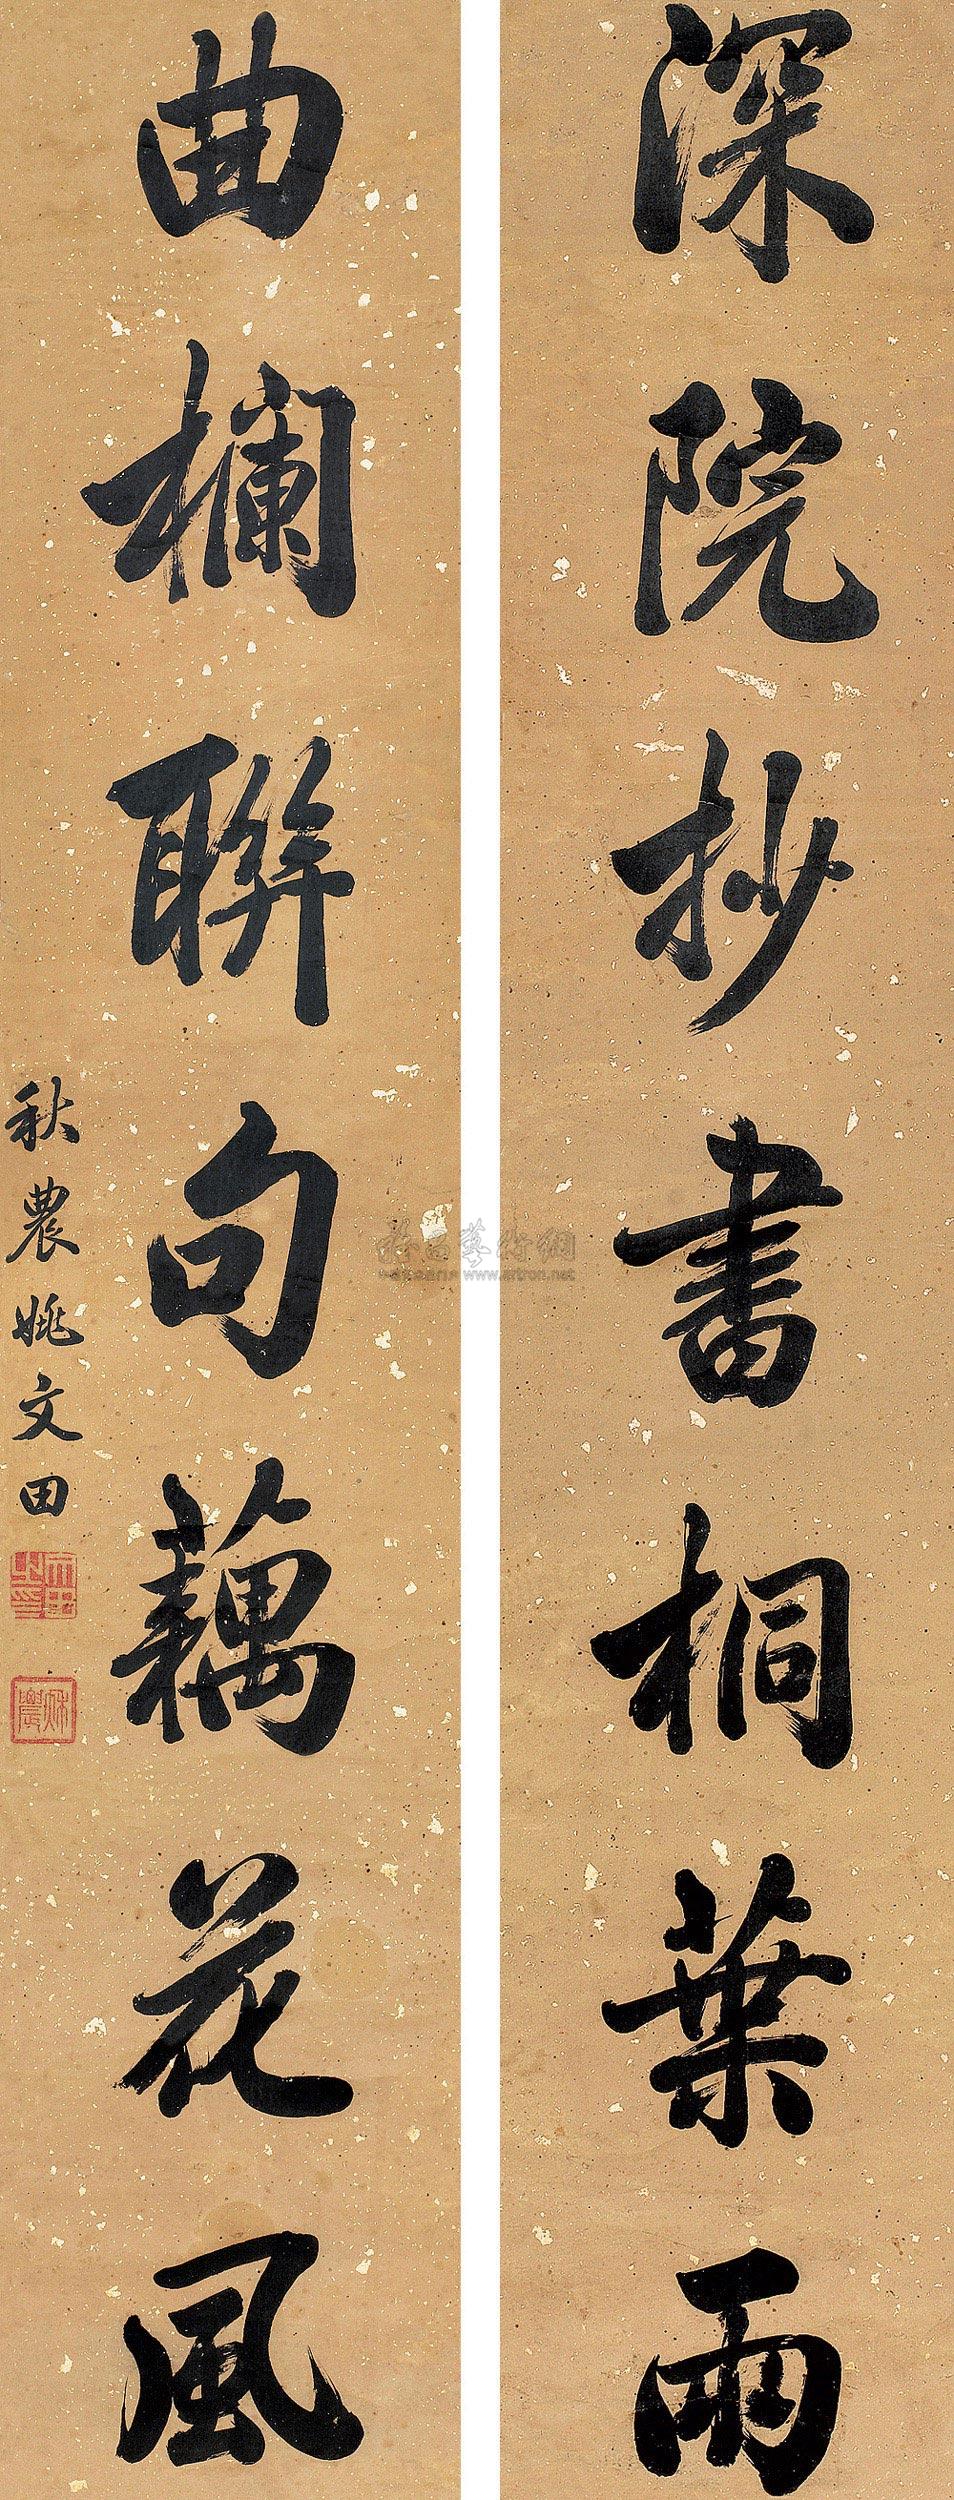 深院抄書桐葉雨
曲欄聯句藕花風
秋農姚文田
文田之印
秋農
www.artron.net